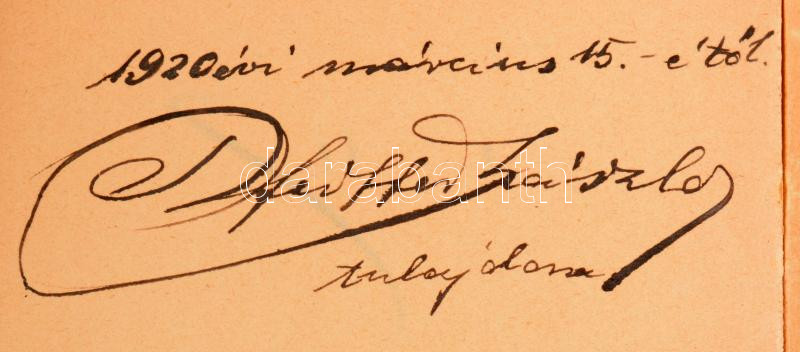 1920 évi március 15.-étől.
László
tulajdona
darabanth